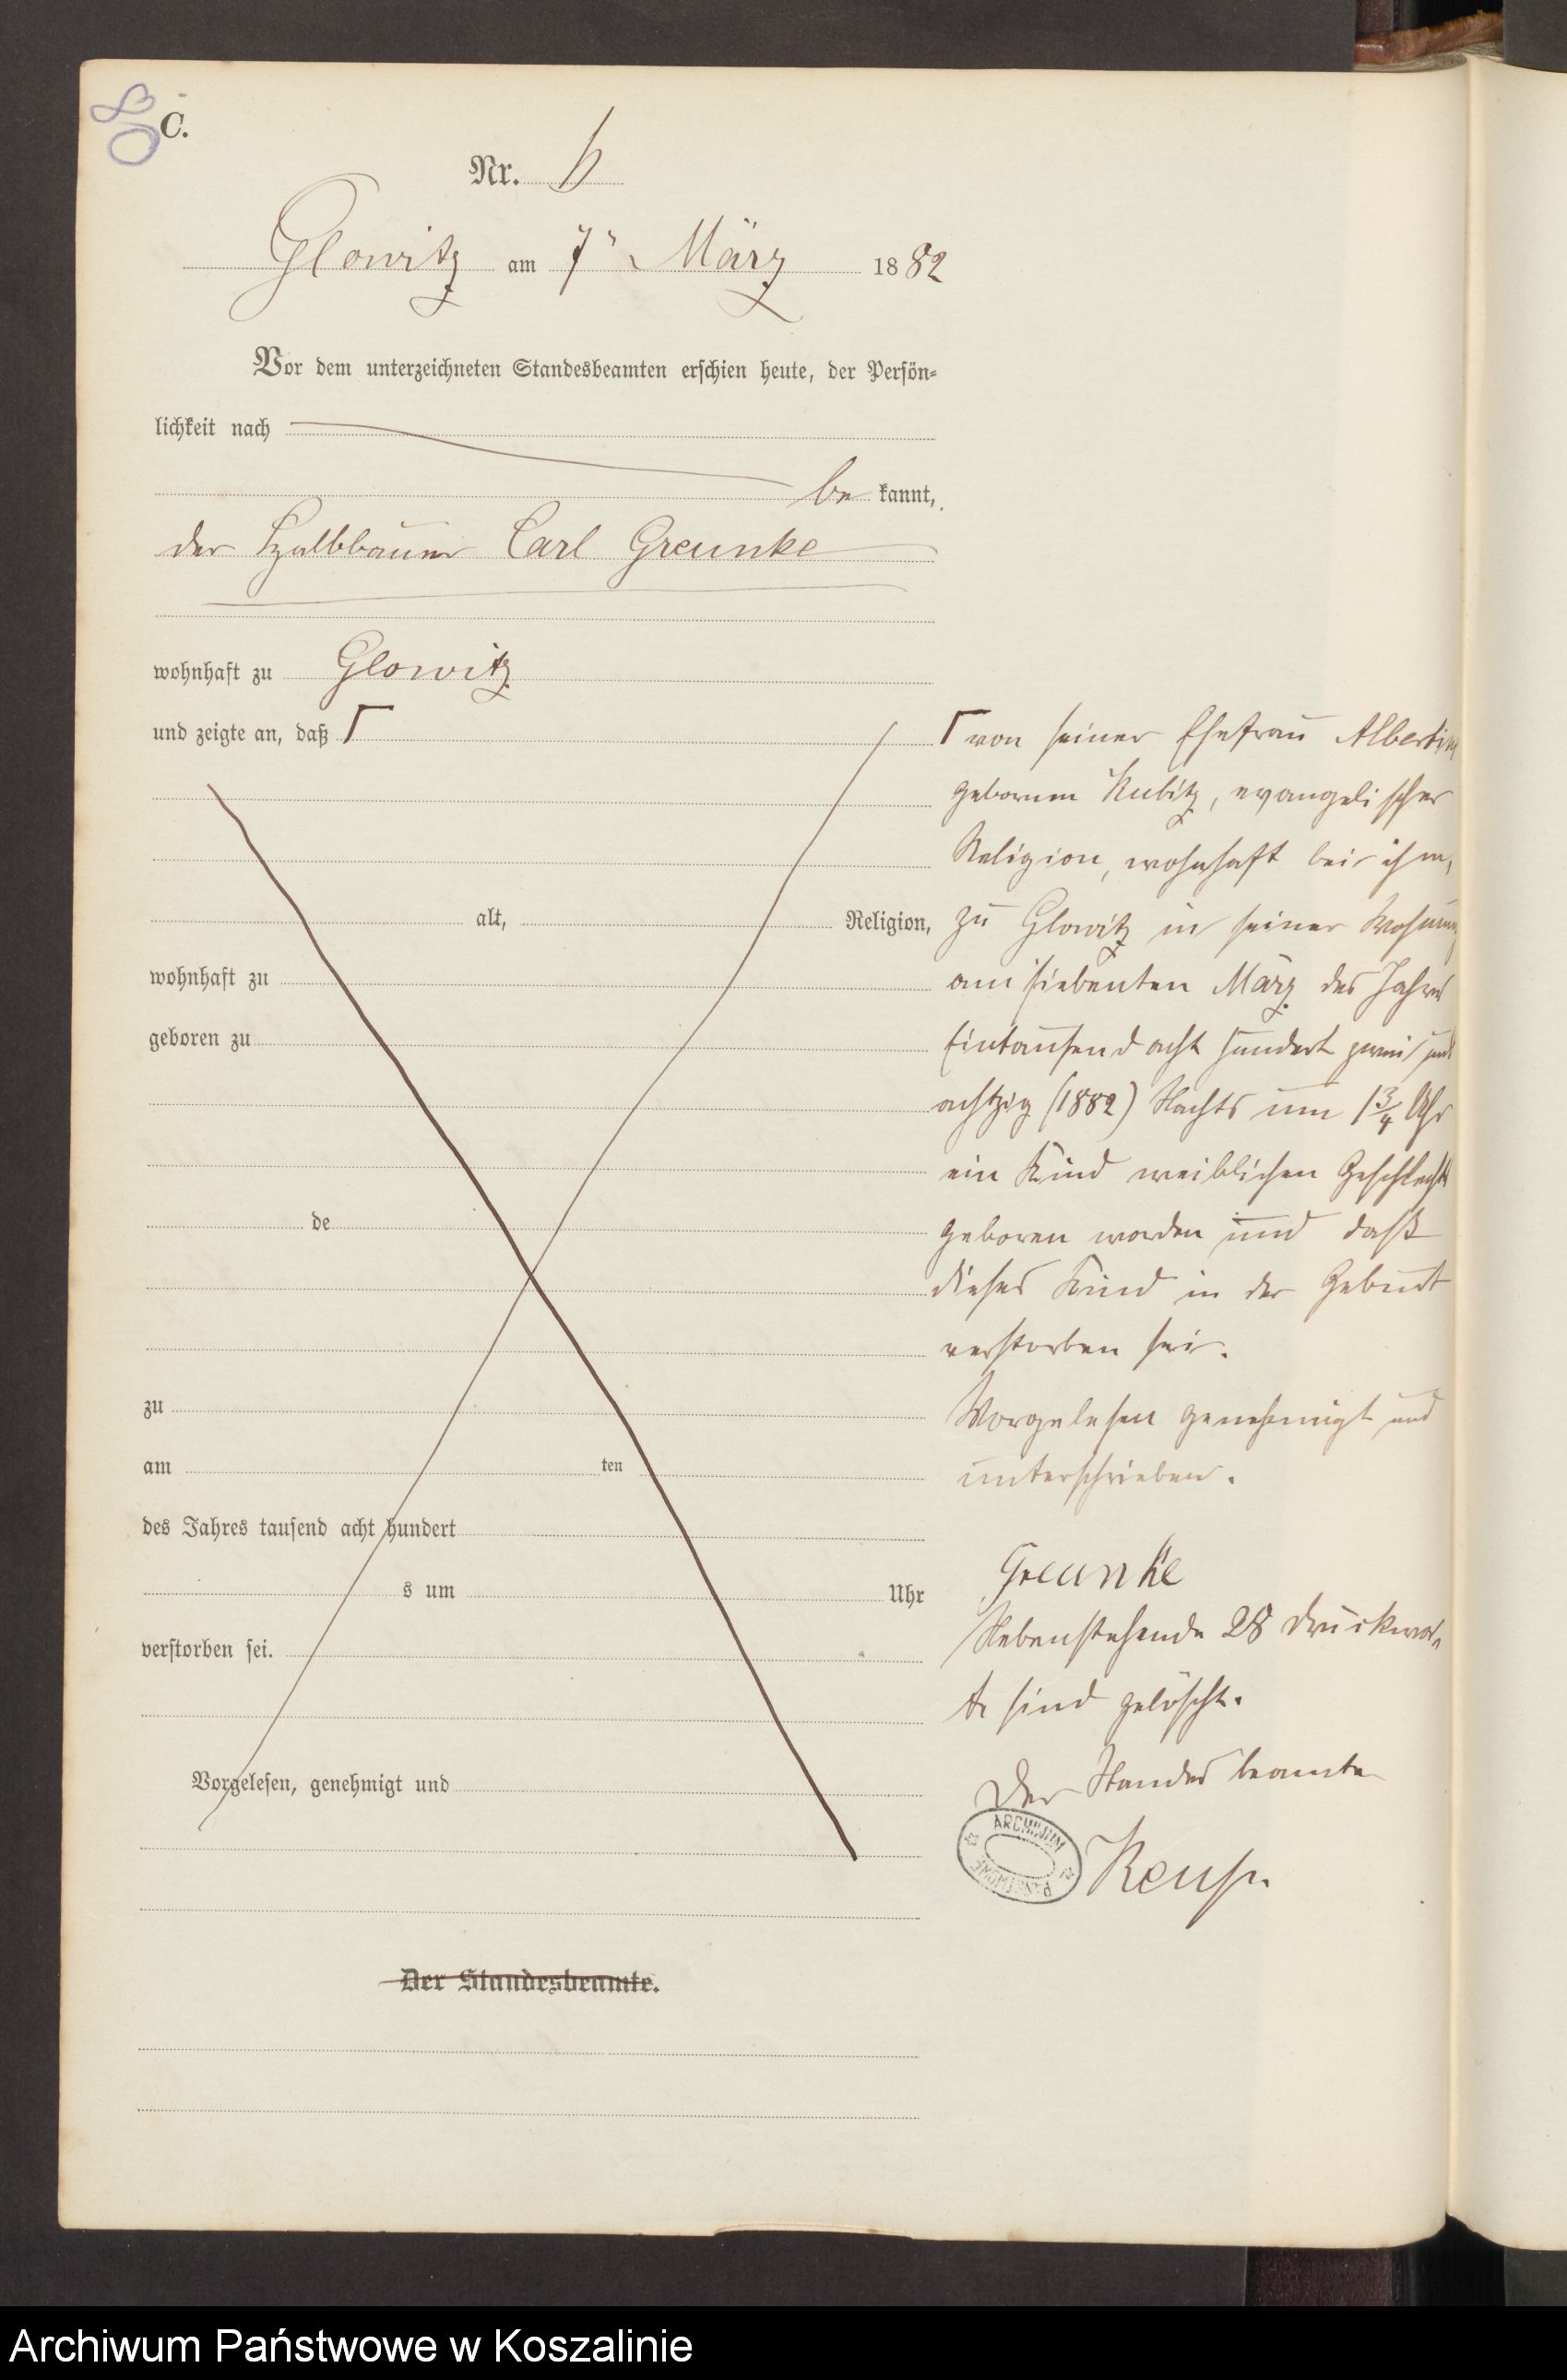 C.
Nr. 6
Glowitz am 7ᵗᵉⁿ März 1882
Vor dem unterzeichneten Standesbeamten erschien heute, der Persön-
lichkeit nach
be kannt,
der Halbbauer Carl Greunke
wohnhaft zu Glowitz
und zeigte an, daß Γ
alt, Religion,
wohnhaft zu
geboren zu
de
zu
am ten
des Jahres tausend acht hundert
s um Uhr
verstorben sei.
Vorgelesen, genehmigt und
Der Standesbeamte.
Γ von seiner Ehefrau Albertine
geborenen Kubitz, evangelischer
Religion, wohnhaft bei ihm,
zu Glowitz in seiner Wohnung
am siebenten März des Jahres
Eintausend acht hundert zwei und
achtzig (1882) Nachts um 1¾ Uhr
ein Kind weiblichen Geschlechts
geboren worden und daß
dieses Kind in der Geburt
verstorben sei.
Vorgelesen genehmigt und
unterschrieben.
Greunke
Nebenstehende 28 Druckwor-
te sind gelöscht.
Der Standesbeamte
ARCHIWUM PAŃSTWOWE
Archiwum Państwowe w Koszalinie